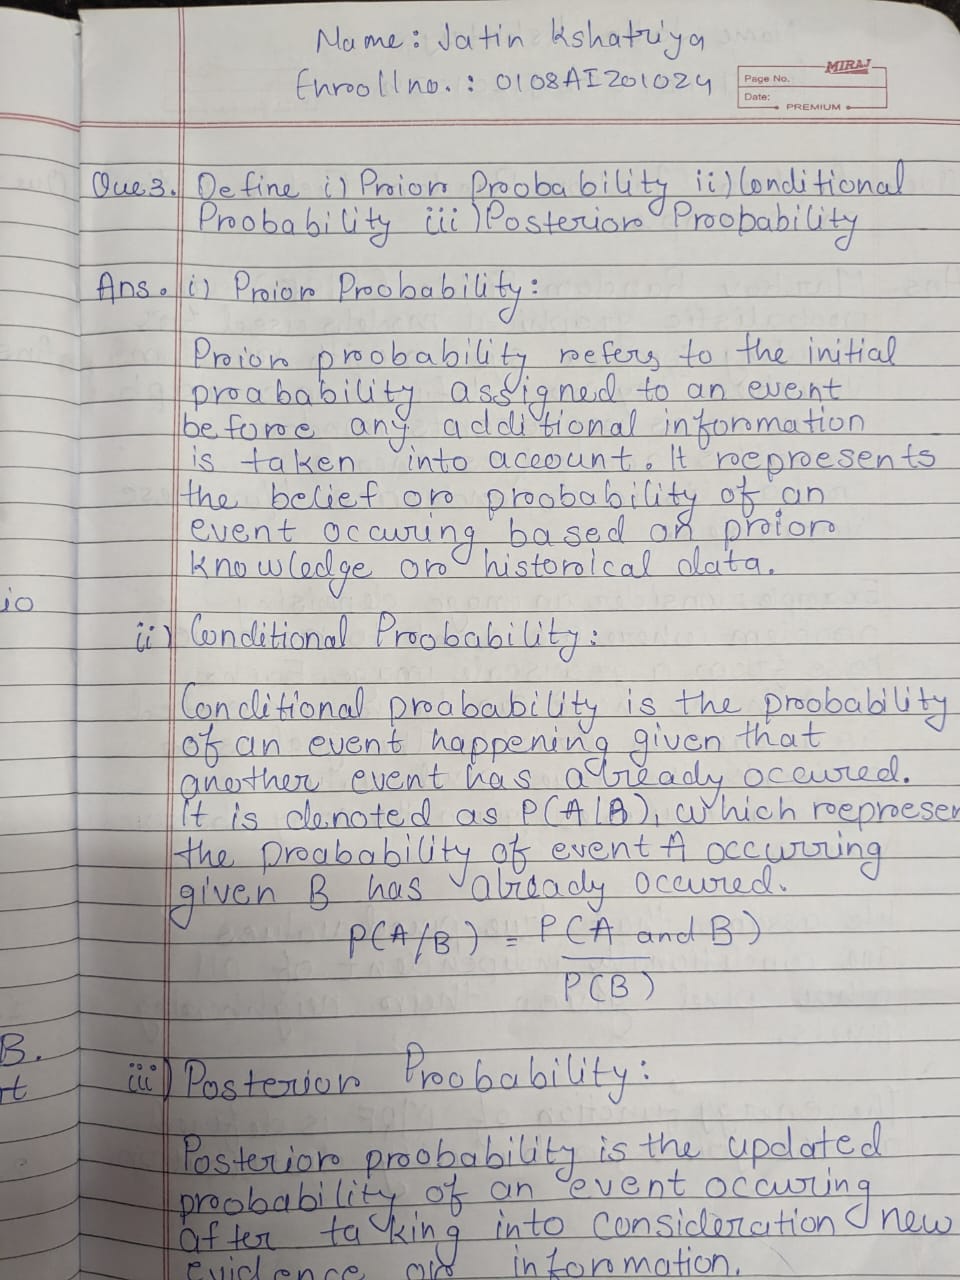 Name: Jatin Kshatriya
Enroll no. : 0108AI201024
MIRAJ
Page No.
Date:
PREMIUM
Que 3. Define i) Prior Probability ii) Conditional
Probability iii) Posterior Probability
Ans. i) Prior Probability:
Prior probability refers to the initial
proabability assigned to an event
before any additional information
is taken into account. It represents
the belief or probability of an
event occuring based on prior
knowledge or historical data.
io
ii) Conditional Probability:
Conditional proabability is the probability
of an event happening given that
another event has already occured.
it is denoted as P(A|B), which represen
the proabability of event A occurring
given B has already occured.
P(A/B) = P(A and B)
P(B)
B.
iii) Posterior Probability:
rt
Posterior probability is the updated
probability of an event occuring
after taking into consideration new
evidence or information.